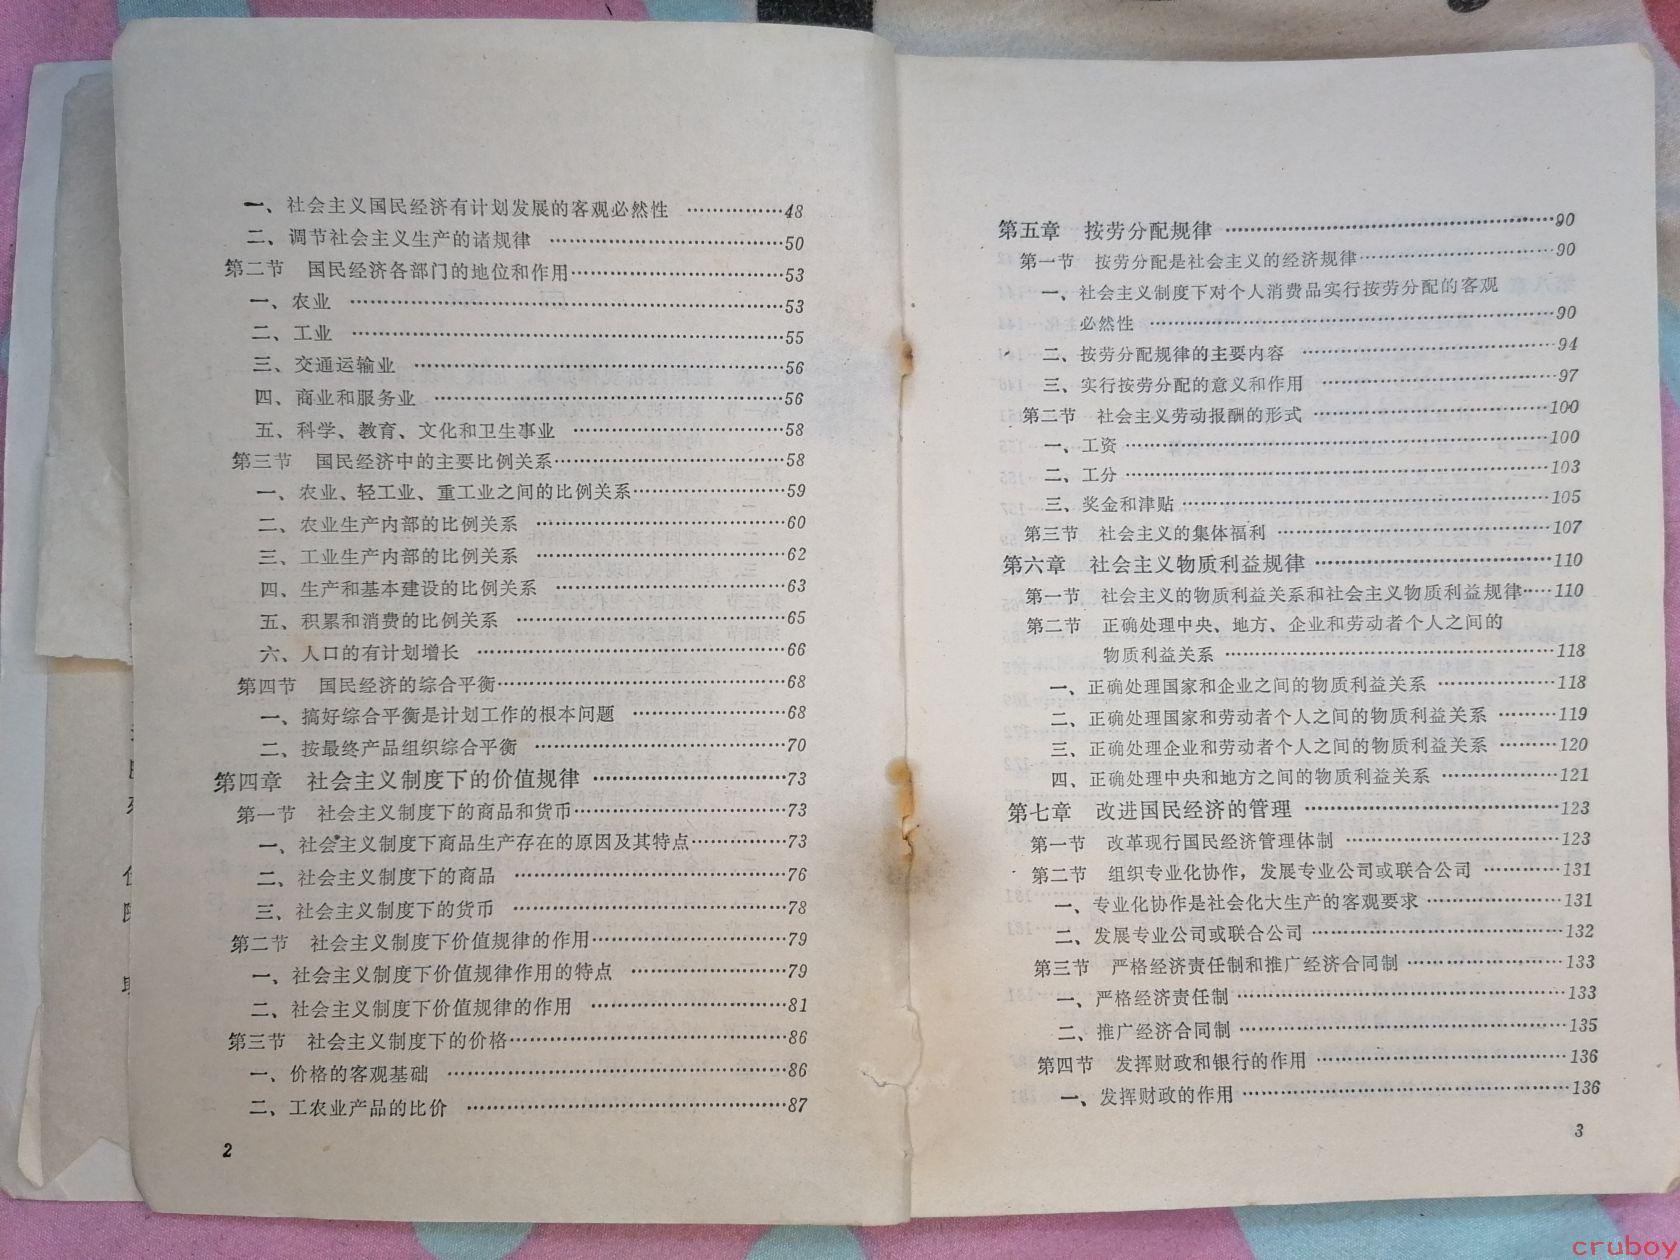 一、社会主义国民经济有计划发展的客观必然性 ……………48
二、调节社会主义生产的诸规律 ……………50
第二节 国民经济各部门的地位和作用……………53
一、农业 ……………53
二、工业 ……………55
三、交通运输业 ……………56
四、商业和服务业 ……………56
五、科学、教育、文化和卫生事业 ……………58
第三节 国民经济中的主要比例关系……………58
一、农业、轻工业、重工业之间的比例关系……………59
二、农业生产内部的比例关系 ……………60
三、工业生产内部的比例关系 ……………62
四、生产和基本建设的比例关系 ……………63
五、积累和消费的比例关系 ……………65
六、人口的有计划增长 ……………66
第四节 国民经济的综合平衡……………68
一、搞好综合平衡是计划工作的根本问题 ……………68
二、按最终产品组织综合平衡 ……………70
第四章 社会主义制度下的价值规律 ……………73
第一节 社会主义制度下的商品和货币……………73
一、社会主义制度下商品生产存在的原因及其特点……………73
二、社会主义制度下的商品 ……………76
三、社会主义制度下的货币 ……………78
第二节 社会主义制度下价值规律的作用……………79
一、社会主义制度下价值规律作用的特点 ……………79
二、社会主义制度下价值规律的作用 ……………81
第三节 社会主义制度下的价格……………86
一、价格的客观基础 ……………86
二、工农业产品的比价 ……………87
2
第五章 按劳分配规律 ……………90
第一节 按劳分配是社会主义的经济规律……………90
一、社会主义制度下对个人消费品实行按劳分配的客观
必然性 ……………90
二、按劳分配规律的主要内容 ……………94
三、实行按劳分配的意义和作用 ……………97
第二节 社会主义劳动报酬的形式 ……………100
一、工资 ……………100
二、工分 ……………103
三、奖金和津贴 ……………105
第三节 社会主义的集体福利 ……………107
第六章 社会主义物质利益规律 ……………110
第一节 社会主义的物质利益关系和社会主义物质利益规律……110
第二节 正确处理中央、地方、企业和劳动者个人之间的
物质利益关系 ……………118
一、正确处理国家和企业之间的物质利益关系 ……………118
二、正确处理国家和劳动者个人之间的物质利益关系 ………119
三、正确处理企业和劳动者个人之间的物质利益关系 ………120
四、正确处理中央和地方之间的物质利益关系 ……………121
第七章 改进国民经济的管理 ……………123
第一节 改革现行国民经济管理体制 ……………123
第二节 组织专业化协作，发展专业公司或联合公司 …………131
一、专业化协作是社会化大生产的客观要求 ……………131
二、发展专业公司或联合公司 ……………132
第三节 严格经济责任制和推广经济合同制 ……………133
一、严格经济责任制 ……………133
二、推广经济合同制 ……………135
第四节 发挥财政和银行的作用 ……………136
一、发挥财政的作用 ……………136
3
cruboy